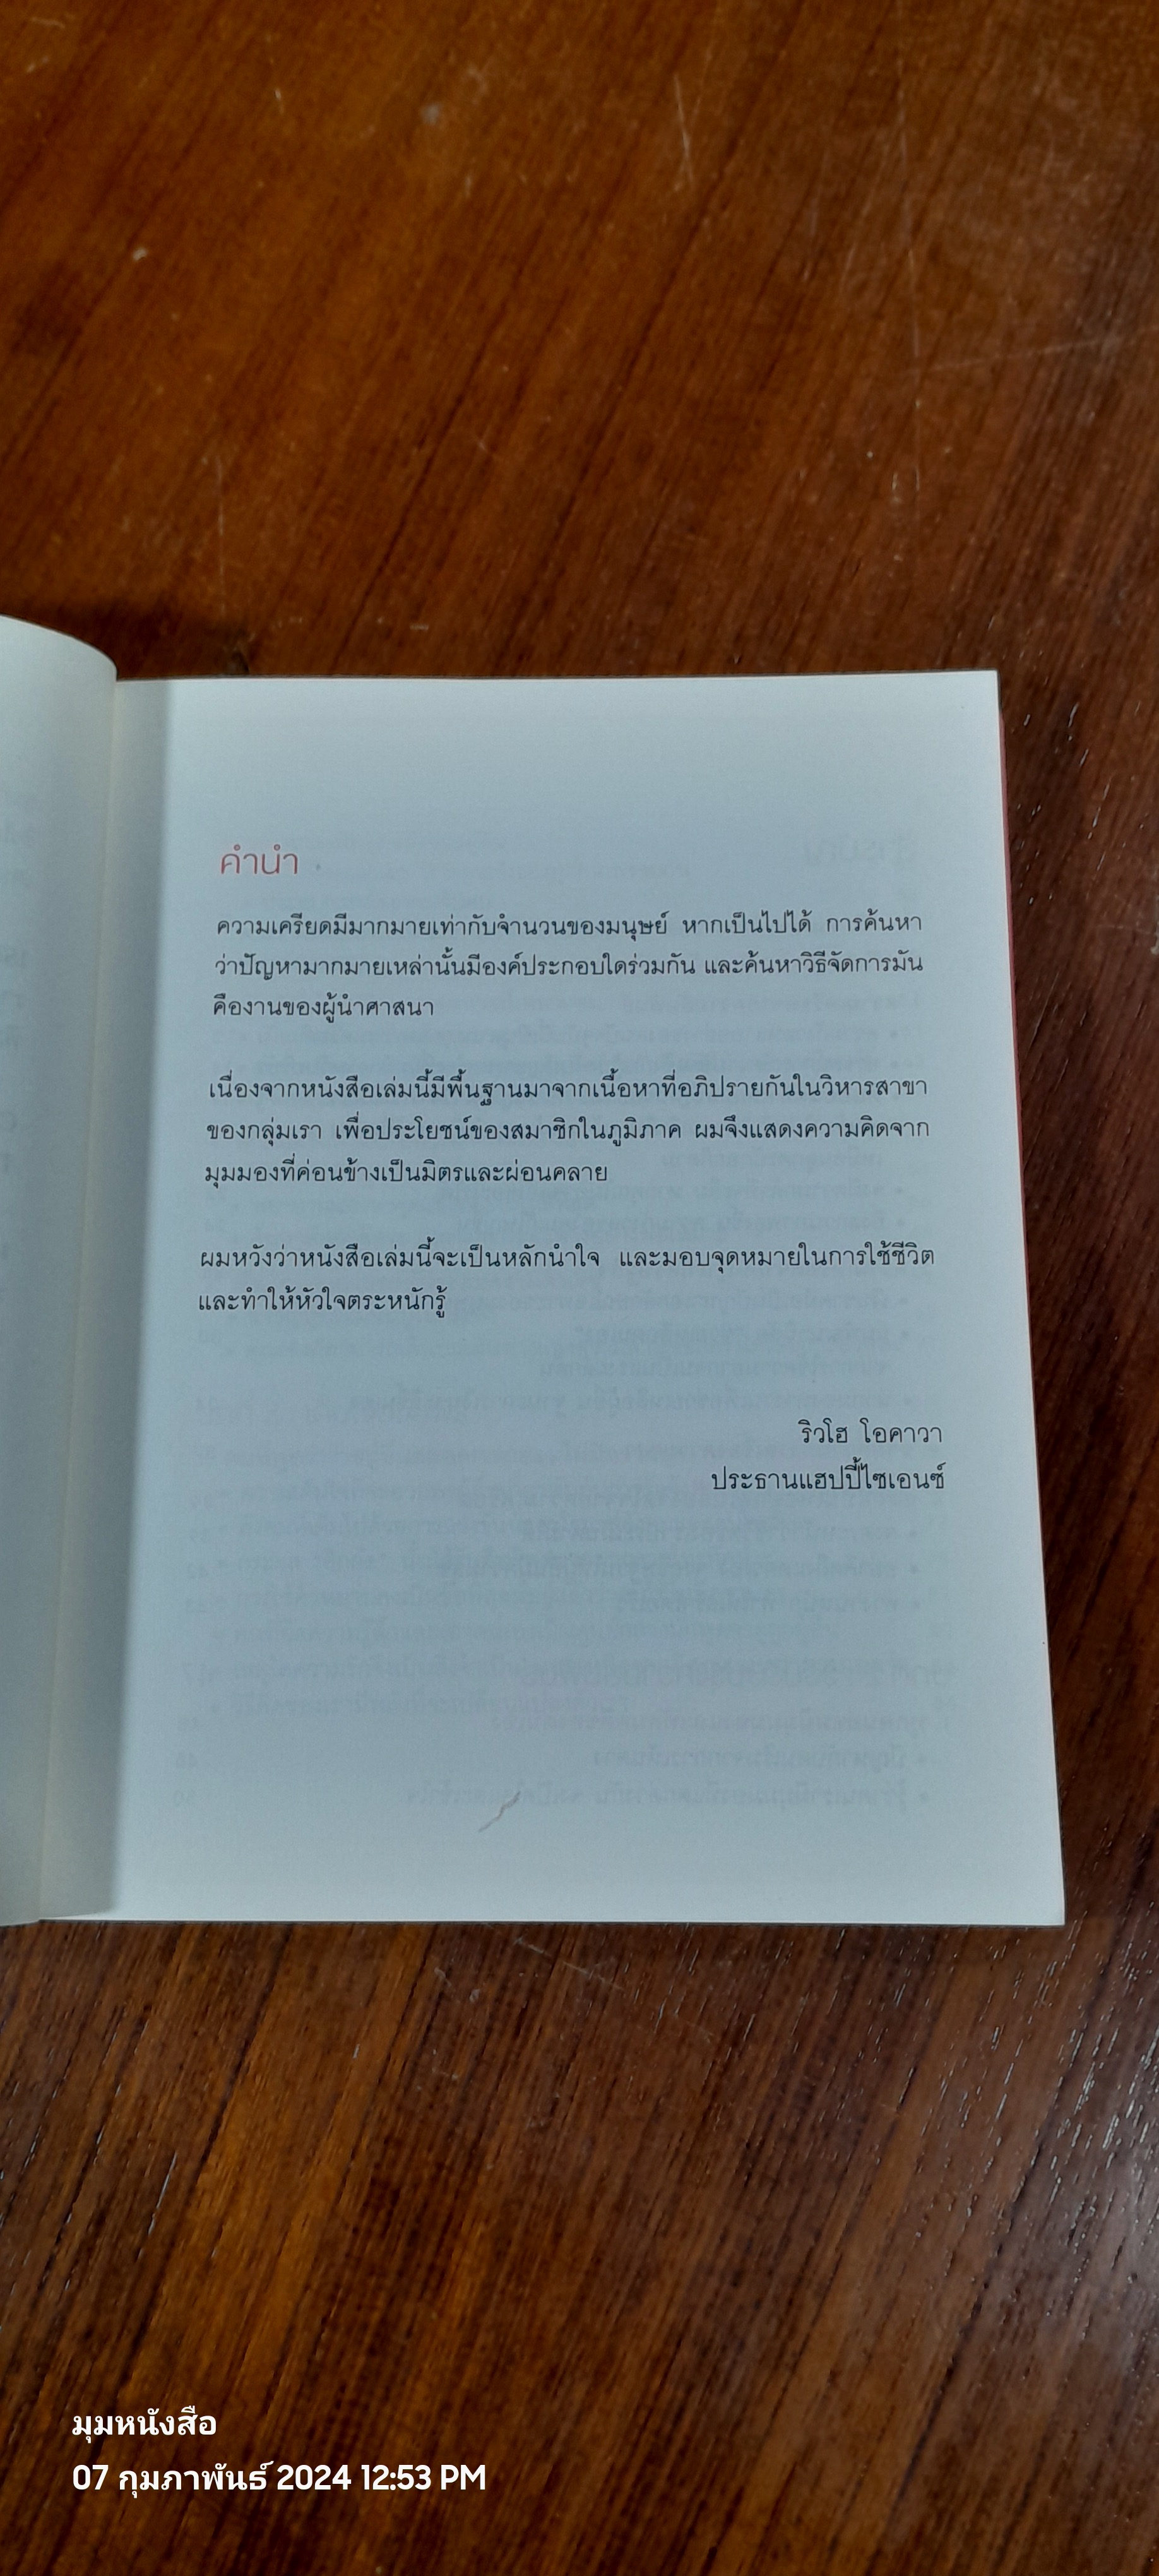 คำนำ
ความเครียดมีมากมายเท่ากับจำนวนของมนุษย์ หากเป็นไปได้ การค้นหา
ว่าปัญหามากมายเหล่านั้นมีองค์ประกอบใดร่วมกัน และค้นหาวิธีจัดการมัน
คืองานของผู้นำศาสนา
เนื่องจากหนังสือเล่มนี้มีพื้นฐานมาจากเนื้อหาที่อภิปรายกันในวิหารสาขา
ของกลุ่มเรา เพื่อประโยชน์ของสมาชิกในภูมิภาค ผมจึงแสดงความคิดจาก
มุมมองที่ค่อนข้างเป็นมิตรและผ่อนคลาย
ผมหวังว่าหนังสือเล่มนี้จะเป็นหลักนำใจ และมอบจุดหมายในการใช้ชีวิต
และทำให้หัวใจตระหนักรู้
ริวโฮ โอคาวา
ประธานแฮปปี้ไซเอนซ์
มุมหนังสือ
07 กุมภาพันธ์ 2024 12:53 PM